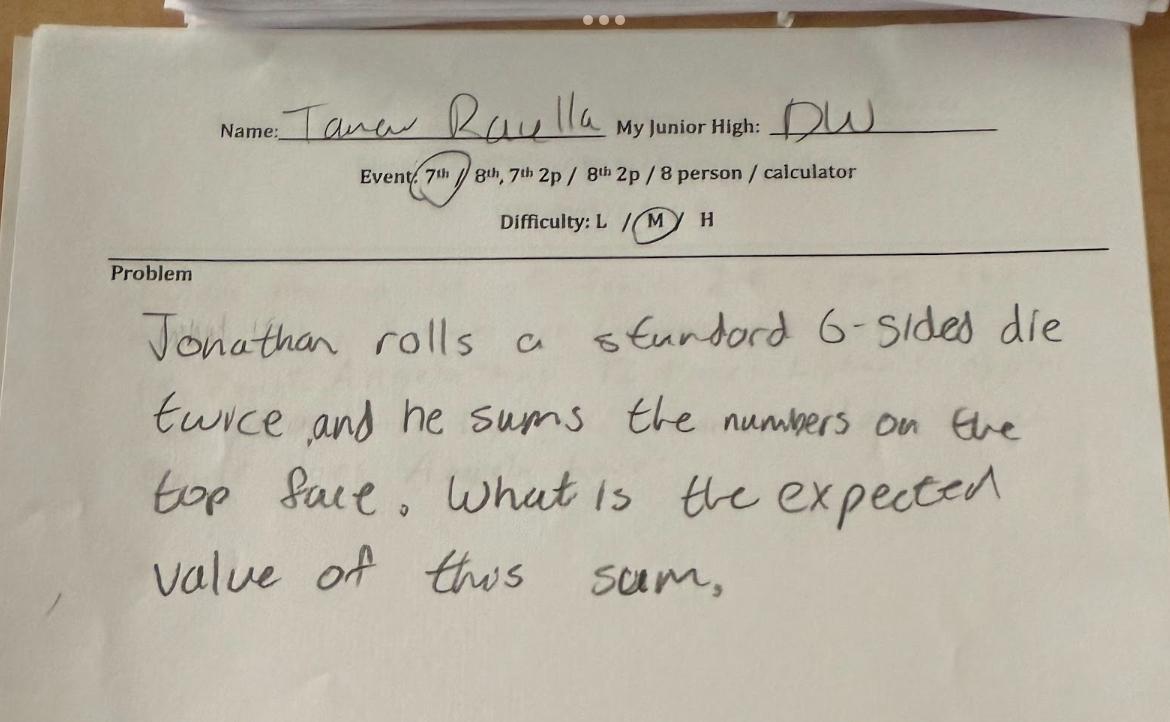 Name: Tanav Ravella My Junior High: DW
Event: 7th / 8th, 7th 2p / 8th 2p / 8 person / calculator
Difficulty: L / M / H
Problem
Jonathan rolls a standard 6-sided die
twice, and he sums the numbers on the
top face. What is the expected
value of this sum.